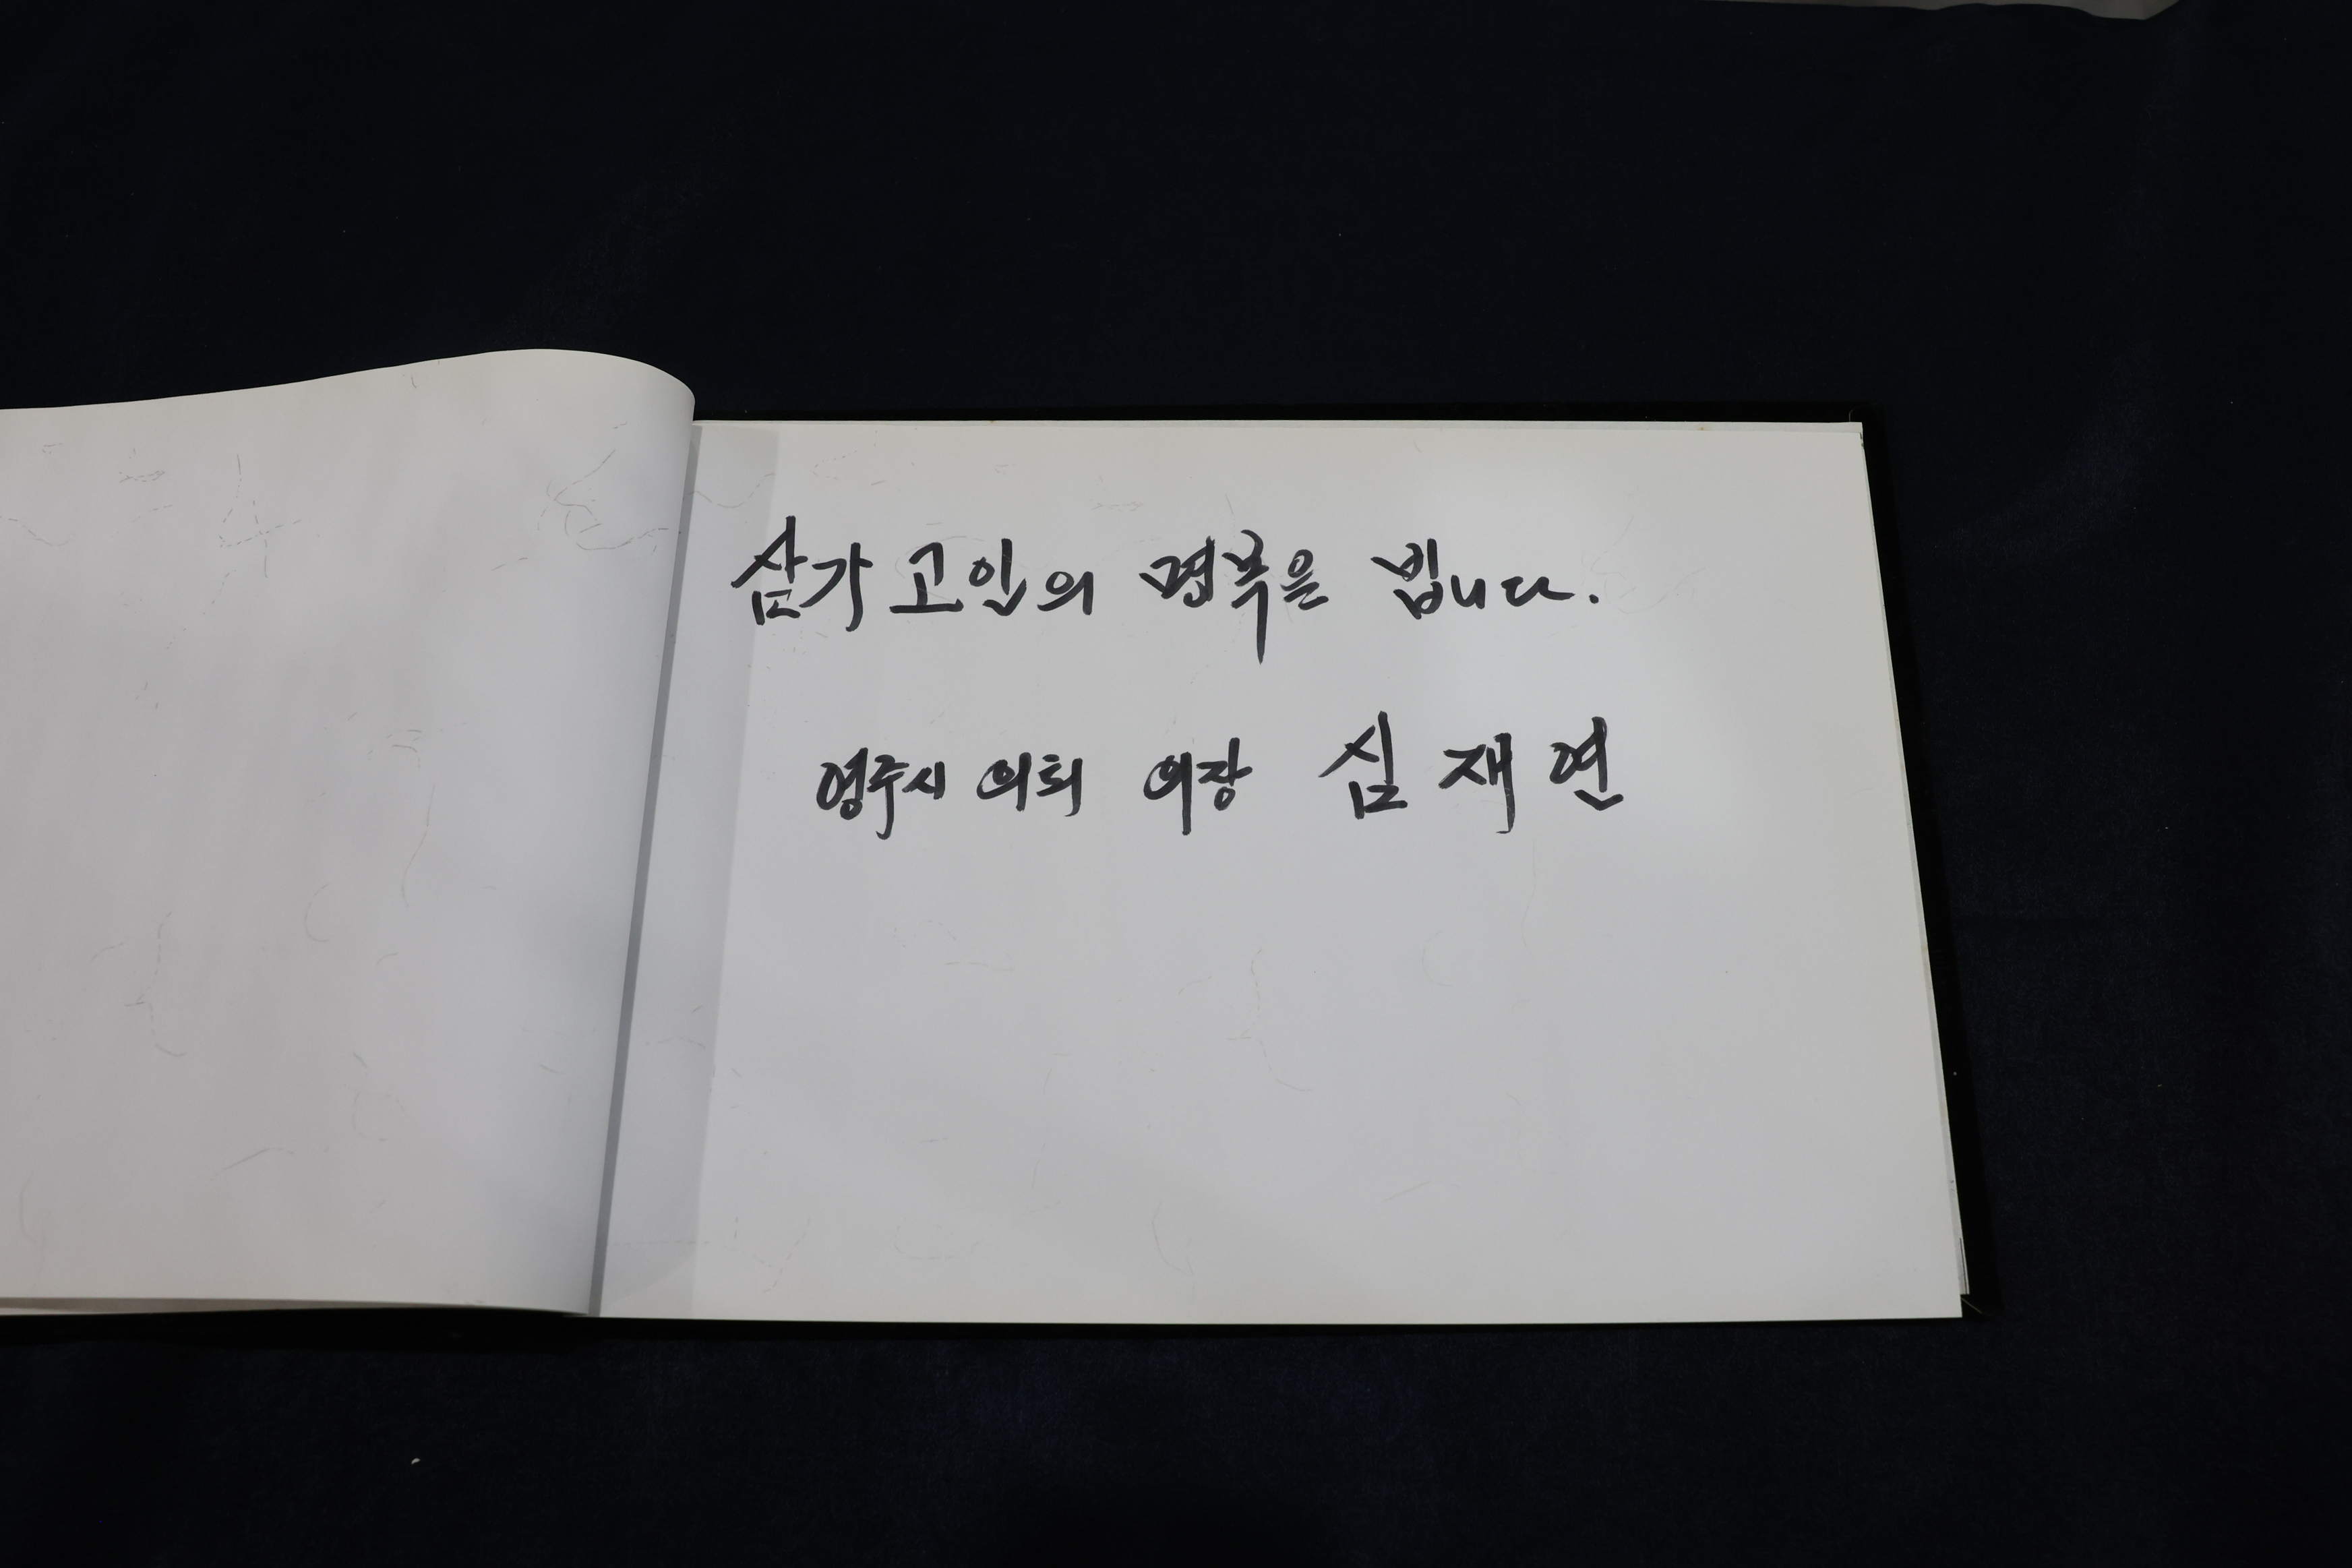 삼가 고인의 명복을 빕니다.
영주시 의회 의장 심재연